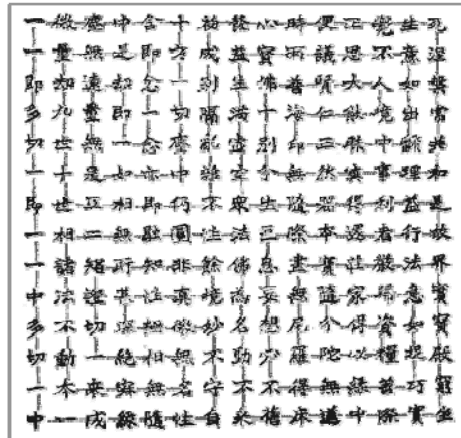 一微塵中含十初發心時便正覺生死
一量無是即方成益寶雨議思不意涅
即劫遠劫念一別生佛普賢大人如槃
多九量即一切隔滿十海仁能境出常
切世無一念塵亂虛別印三昧中繁共
一十是如亦中雜空分無然冥事理和
即世互相即仍不眾生隨器得利益是
一相二無融圓性法叵際本還者行故
一諸智所知非餘佛息盡寶莊嚴法界
中法證甚性真境為妄無隨家歸意實
多不切深極微妙名想尼分得資如寶
切動一絕相無不動必羅陀以糧捉殿
一本來寂無名守不不得無緣善巧窮
中一成緣隨性自來舊床道中際實坐